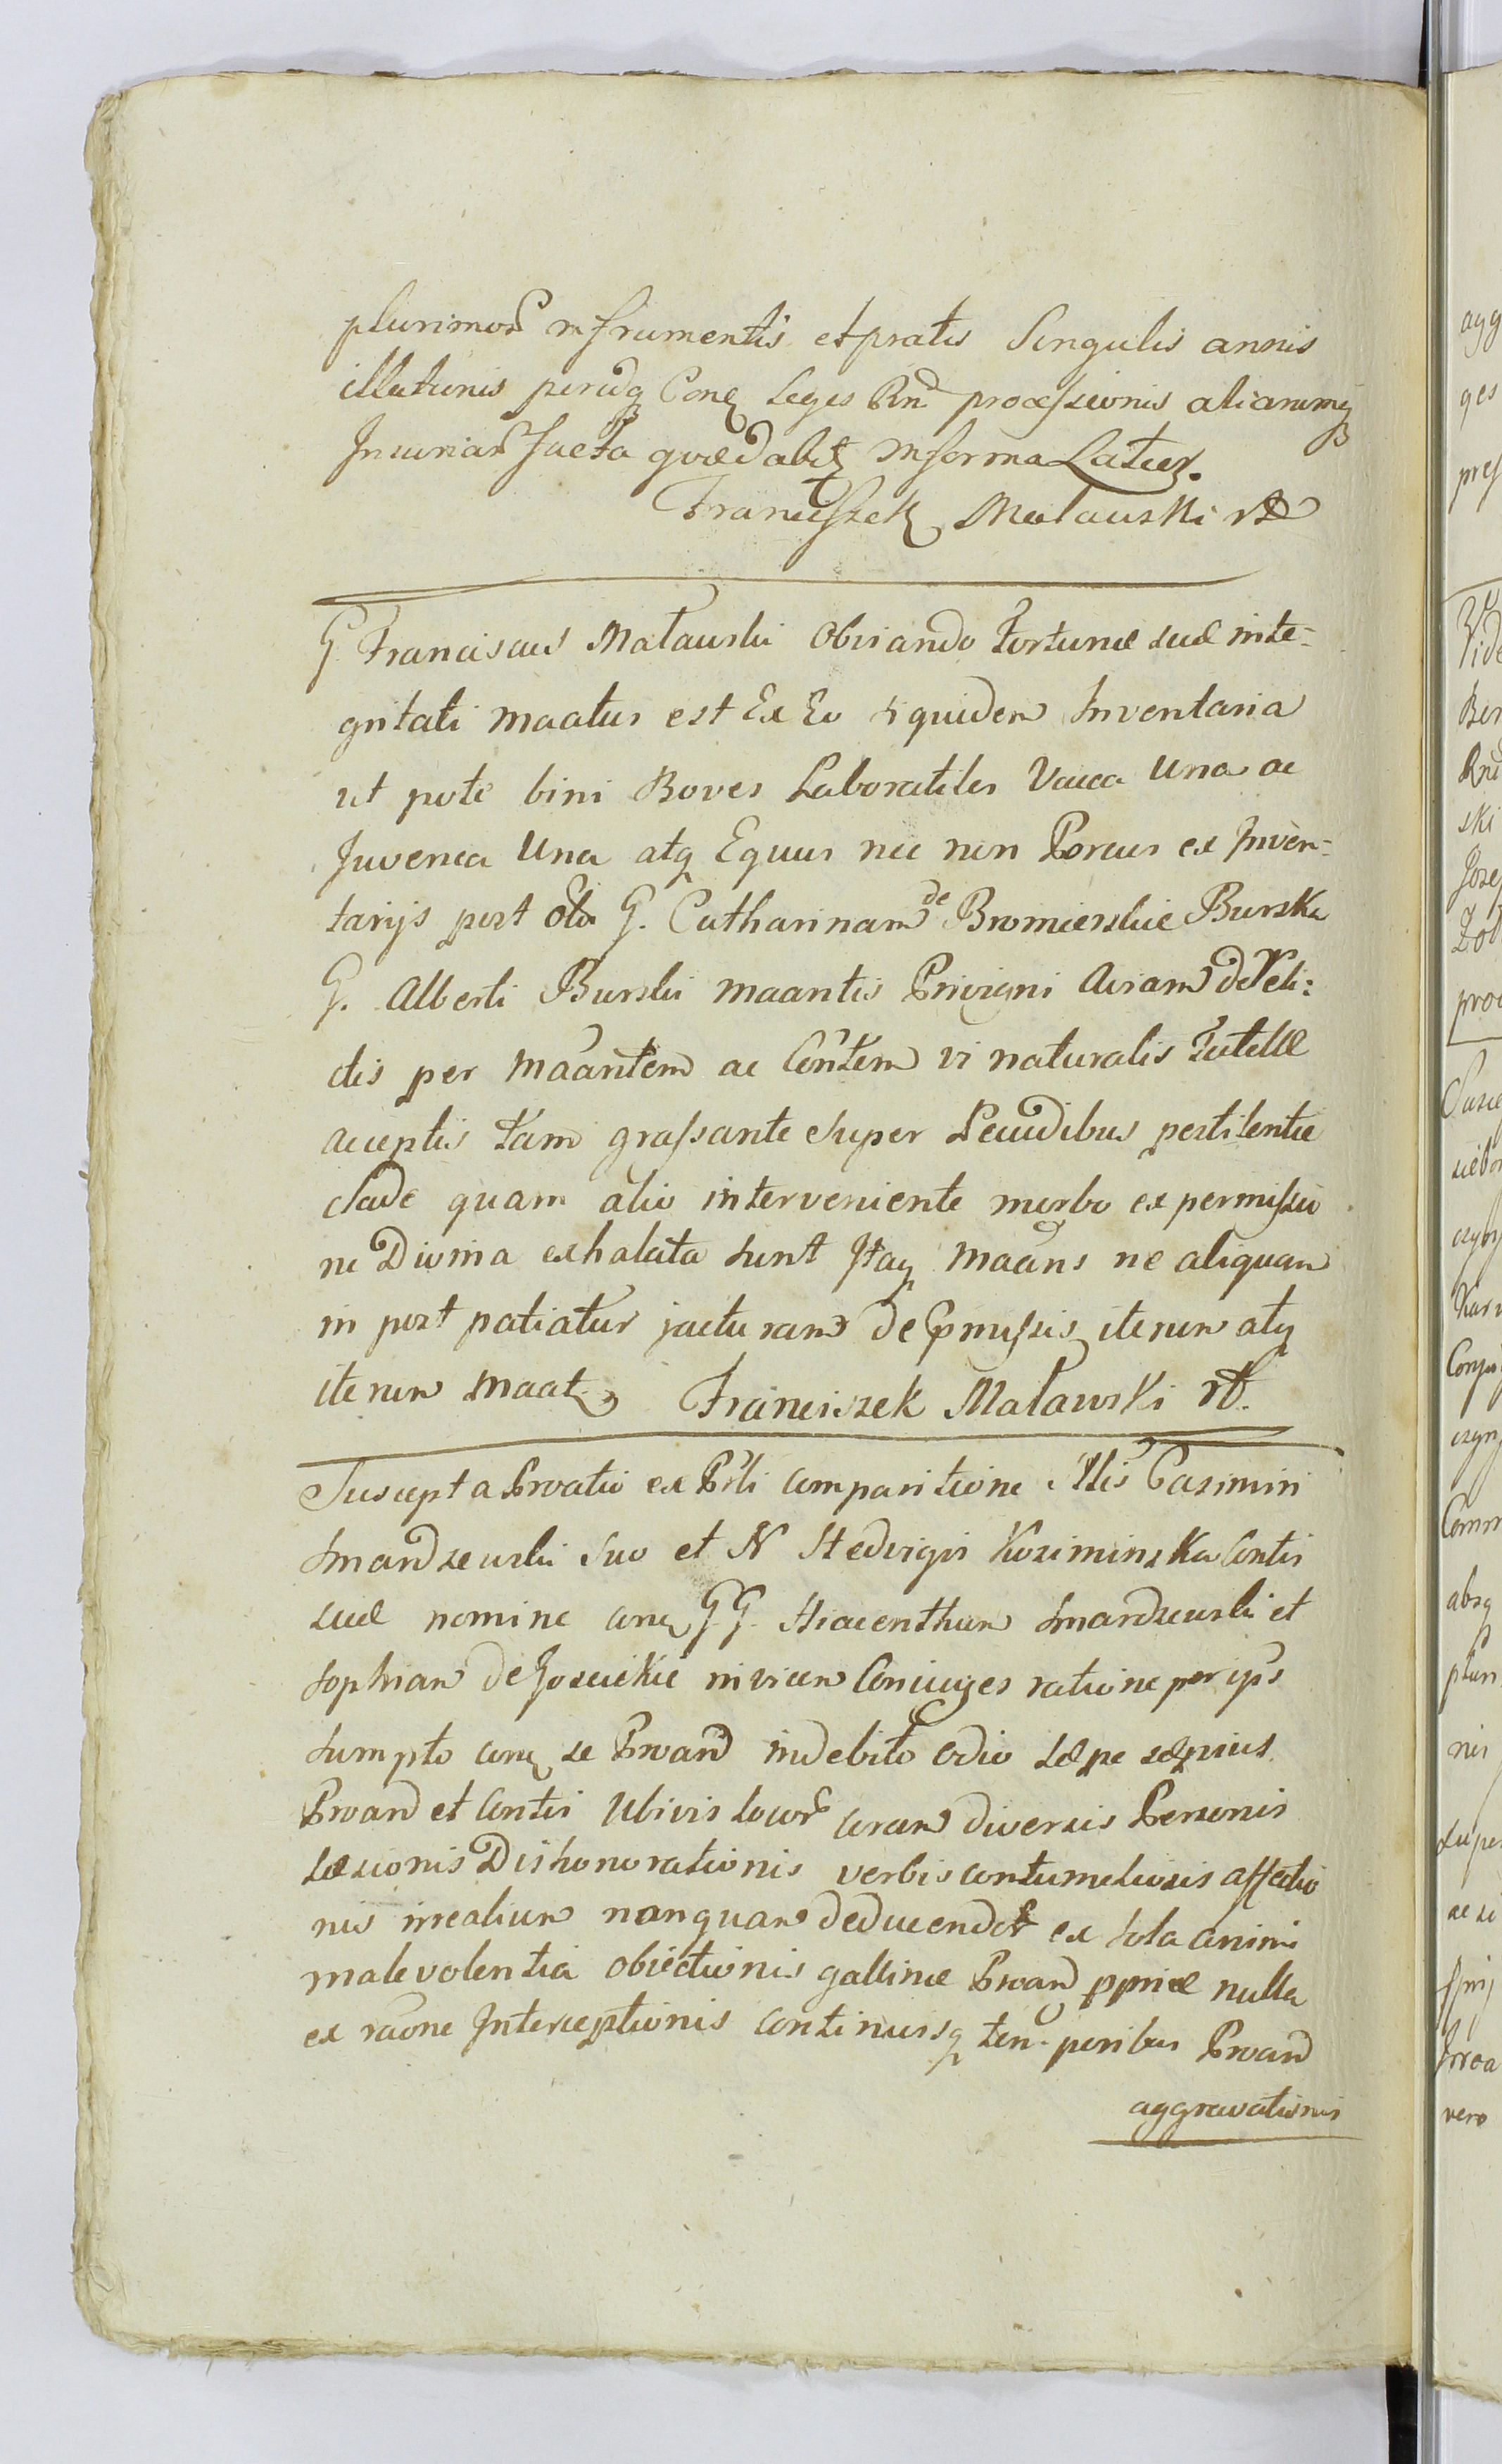 plurimor in frumentis et pratis Singulis annis
illationis perindq Conq Leges Rnd processionis aliarumq
Injuriar facta quædabit in forma Latiq.
Franciszek Malawski
G Franciscus Malawski Obviando Fortunæ suæ inte-
gritati maatus est Ex Eo siquidem Inventaria
ut pote bini Boves Laboratiles Vacca Una ac
Juvenca Una atq Equus nec non Porcus ex Inven-
tarijs post ola G. Catharinam de Bromierskie Burska
G. Alberti Burski maantis Privigni Aviam de Reli-
ctis per maantem ac Contem vi naturalis Tutellæ
acceptis tam grassante super Pecudibus pestilentiæ
clade quam alio interveniente morbo ex permissio
ne Divina exhalata sunt Itaq maans ne aliquam
in post patiatur jacturam de Pmissis iterum atq
iterum maat. Franciszek Malawski
Suscepta Proatio ex Psli comparitione Casimiri
Smardzewski suo et N Hedvigis Koziminska Contis
suæ nomine conq GG. Hiacenthum Smardzewski et
Sophiam de invicem Coniuges ratione per ips
sumpto conq se Proand indebito odio sæpe sæpius
Proand et Contis Ubivis locor coram diversis Personis
Læsionis Dishonorationis verbis contumeliosis affectio
nis irrealium nanquam deducendor ex sola animi
malevolentia obiectionis gallinæ Proand ppriæ nulla
ex raone Interceptionis continuisq tem-poribus Proand
aggravationis
agg
ges
pres
Vide
Ber
Rnd
ski
Joze
proc
Conju
Comm
absq
plur
nis
supe
vero